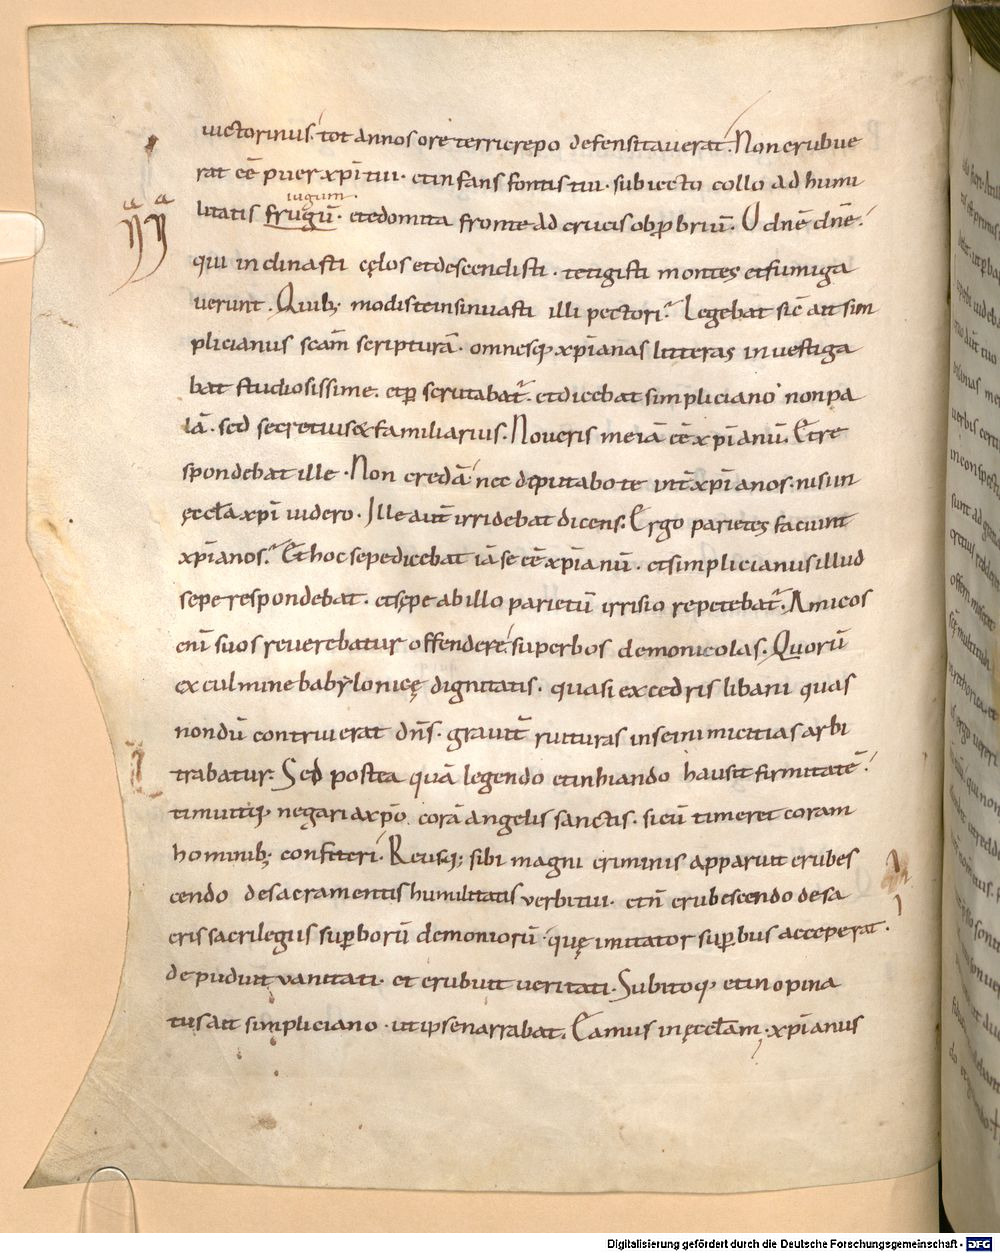 uictorinus. tot annos ore terricrepo defensitauerat. Non erubue
rat eē puer xp̄i tui. et infans fontis tui. subiecto collo ad humi
iugum
litatis frugū. et edomita fronte ad crucis obꝓbriū. O dn̄e dn̄e.
qui inclinasti cęlos et descendisti. tetigisti montes et fumiga
uerunt. Quib; modis te insinuasti illi pectori. Legebat sic̄ ait sim
plicianus scām scripturā. omnesq; xp̄ianas litteras inuestiga
bat studiosissime. et ꝑscrutabat̄. et dicebat simpliciano non pa
lā. sed secretius & familiarius. Noueris me iā eē xp̄ianū. Et re
spondebat ille. Non credā nec deputabo te int̄ xp̄ianos. nisi in
ęccl̄a xp̄i uidero. Ille aut̄ irridebat dicens. Ergo parietes faciunt
xp̄ianos. Et hoc sepe dicebat iā se eē xp̄ianū. et simplicianus illud
sepe respondebat. et sępe ab illo parietū irrisio repetebat̄. Amicos
eni̅ suos reuerebatur offendere. superbos demonicolas. Quorū
ex culmine babylonicę dignitatis. quasi ex cedris libani quas
nondū contriuerat dn̄s. grauit̄ ruituras in se inimicitias arbi
trabatur. Sed postea quā legendo et inhiando hausit firmitatē.
timuitq; negari a xp̄o corā angelis sanctis. si eū timeret coram
hominib; confiteri. Reusq; sibi magni criminis apparuit erubes
cendo de sacramentis humilitatis verbi tui. et n̄ erubescendo de sa
cris sacrilegiis suꝑborū demoniorū. quę imitator suꝑbus acceperat.
depuduit vanitati. et erubuit ueritati. Subitoq; et inopina
tus ait simpliciano. ut ipse narrabat. Eamus in ęccl̄am. xp̄ianus